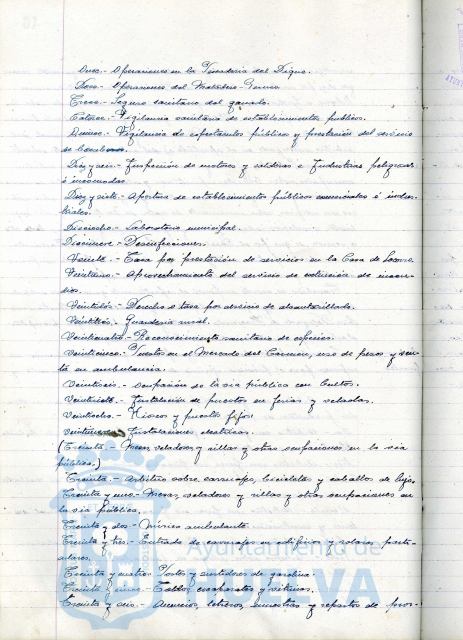 Once.- Operaciones en la Pescadería del Dique.
Doce.- Operaciones del Matadero
Trece.- Seguro sanitario del ganado.
Catorce.- Vigilancia sanitaria de establecimientos públicos.
Quince.- Vigilancia de espectaculos públicos y prestación del servicio
de
Diez y seis.- Inspección de motores y calderas e Industrias peligrosas
é incomodas.
Diez y siete.- Apertura de establecimientos públicos comerciales é indus-
triales.
Dieciocho.- Laboratorio municipal.
Diecinueve.- Desinfecciones.
Veinte.- Tasa por prestación de servicios en la Casa de Socorro.
Veintiuno.- Aprovechamiento del servicio de extinción de incen-
dios.
Veintidós.- Derecho o tasa por servicio de alcantarillado.
Veintitrés.- Guardería rural.
Veinticuatro.- Reconocimiento sanitario de especies.
Veinticinco.- Puestos en el Mercado del Carmen, uso de pesas y ven-
ta en ambulancia.
Veintiseis.- ocupación de la via pública con bultos.
Veintisiete.- Instalación de puestos en ferias y veladas.
Veintiocho.- Kioscos y puestos fijos.
Veintinueve Instalaciones electricas.
(Treinta.- Mesas, veladores y sillas y otras ocupaciones en la via
pública.)
Treinta.- Arbitrio sobre carruajes, bicicletas y caballos de lujo.
Treinta y uno.- Mesas, veladores y sillas y otras ocupaciones en
la via pública.
Treinta y dos.- Música ambulante.
Treinta y tres.- Entrada de carruajes en edificios y solares parti-
culares.
Treinta y cuatro.- Postes y surtidores de gasolina.
Treinta y cinco.- Toldos, escaparates y vitrinas.
Treinta y seis.- Anuncios, letreros, muestras y repartos de pros-
Ayuntamiento de
HUELVA